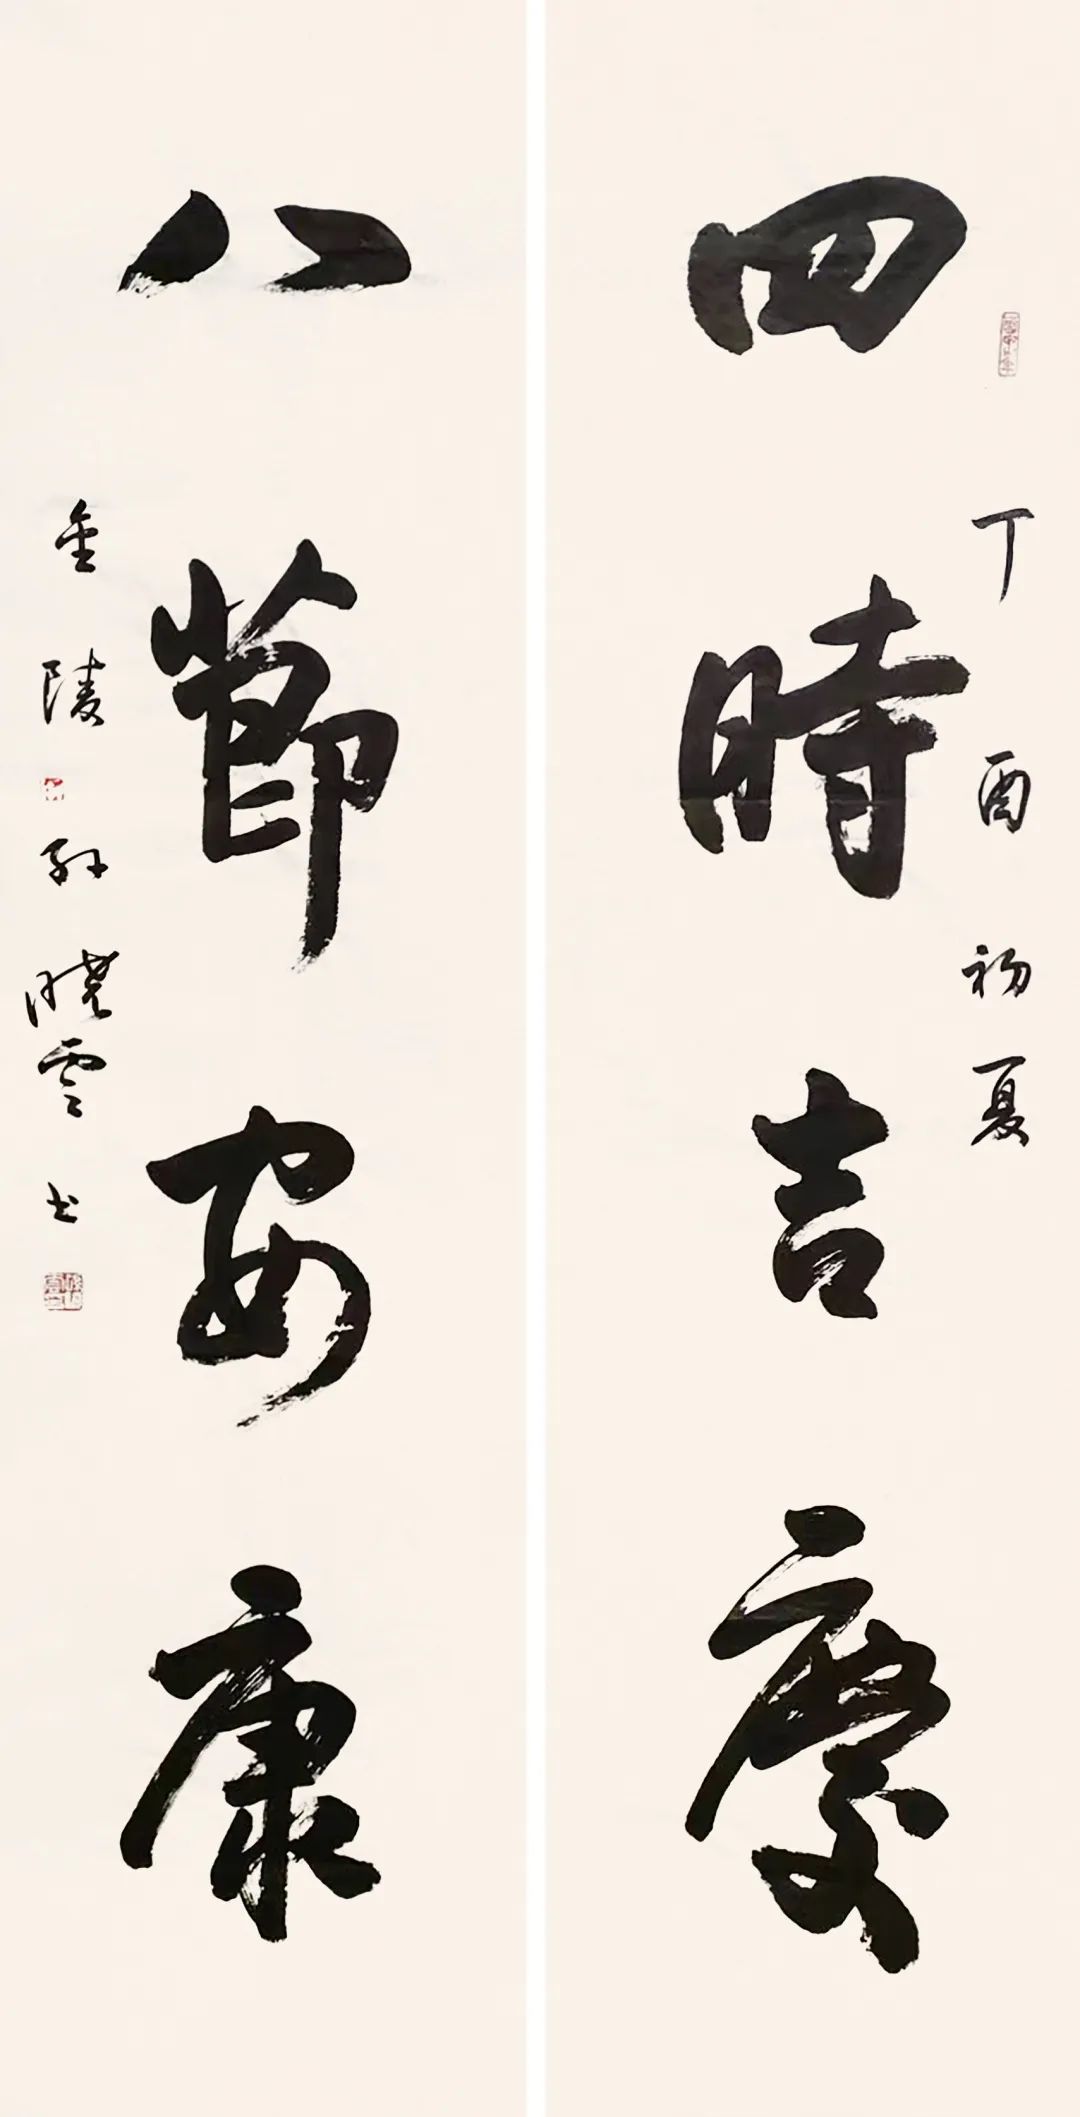 四時吉慶
丁酉初夏
八節安康
金陵孫曉雲書